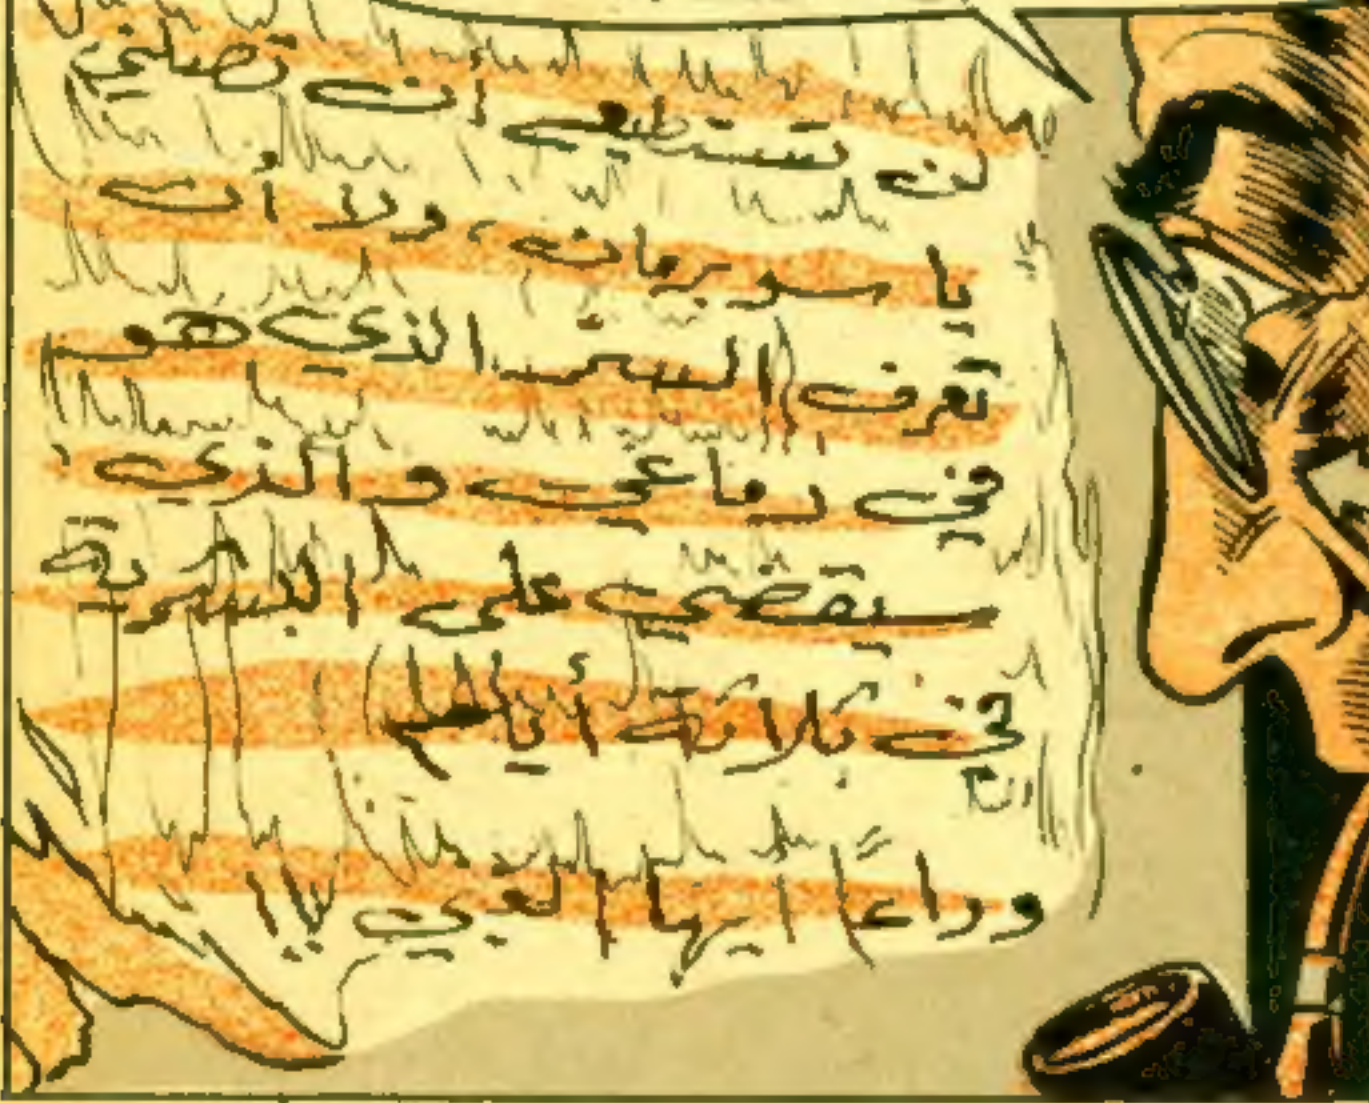 لن تستطيع ان تصلني
يا سوبرمان، ولا أن
تعرف السر الذي هو
في دماغي والذي
سيقضي على البشرية
في ثلاثة أيام
وداعاً ايها الغبي !!